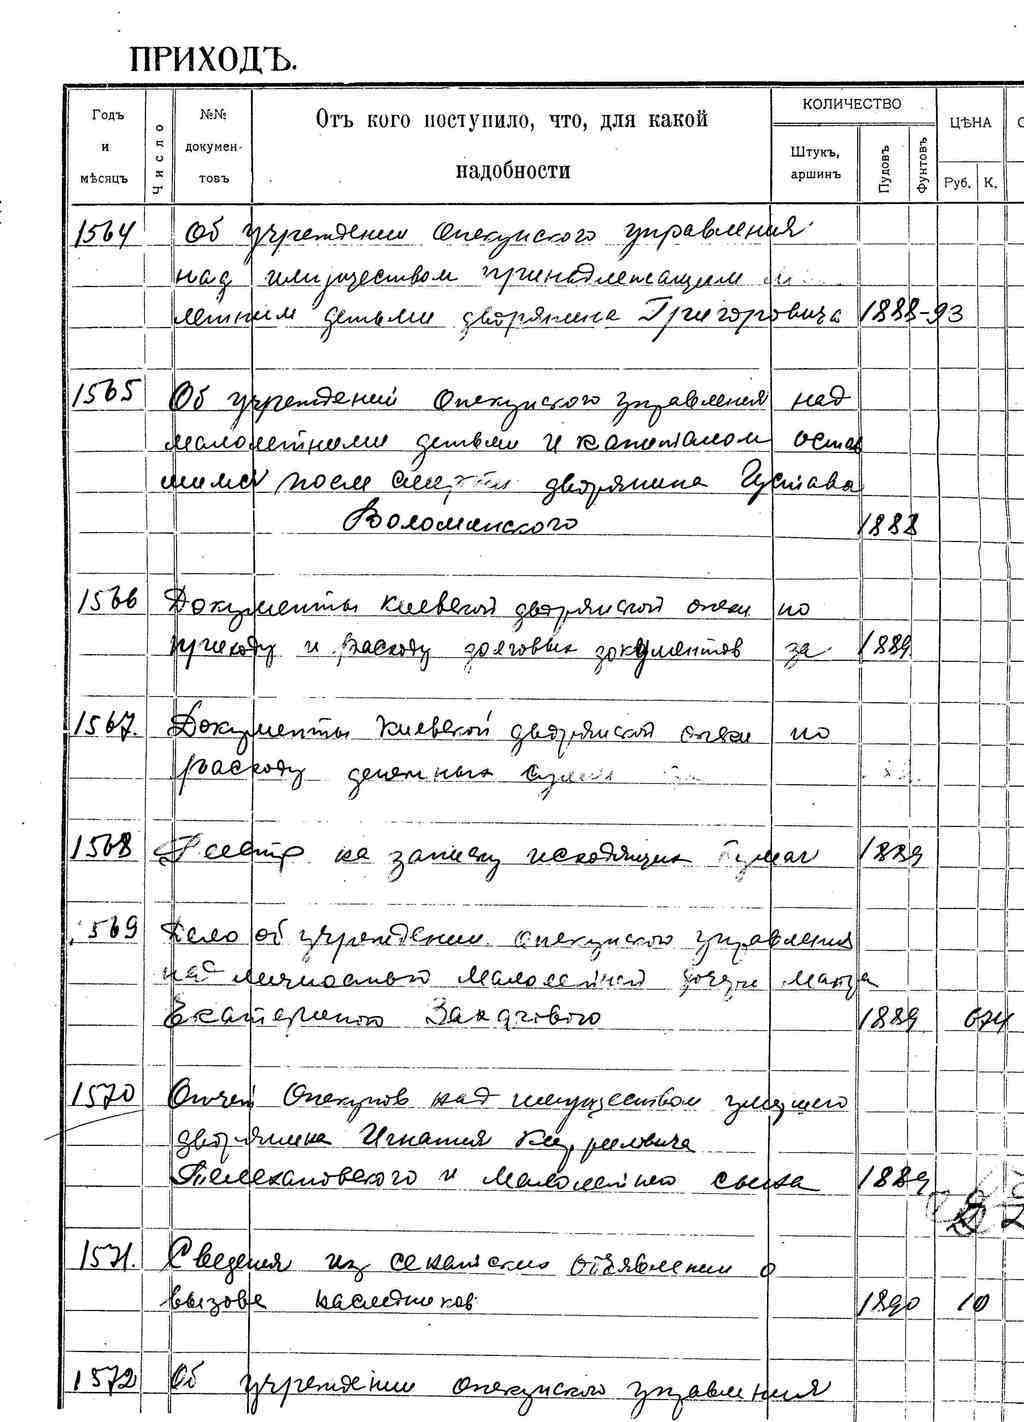 ПРИХОДЪ.
Годъ и мѣсяцъ
Число
№№ докумен- товъ
Отъ кого поступило, что, для какой надобности
КОЛИЧЕСТВО
Штукъ, аршинъ
Пудовъ
Фунтовъ
ЦѢНА
Руб. К.
1564 Об учреждении опекунского управления
над имуществом принадлежащим
летним детьми дворянина Григоровича 1888-93
1565 Об учреждений опекунского управления над
малолетними детьми и капиталом остав
шимся после смерти дворянина Густава
Воломинского 1888
1566 Документы Киевской дворянской опеки по
приходу и расходу долговых документов за 1889
1567. Документы Киевской дворянской опеки по
расходу денежных сумм за
1568 Реестр на записку исходящих бумаг 1889
1569 Дело об учреждении опекунского управления
над личностью малолетней дочери
Екатериною 1889 674
1570 Отчет опекунов над имуществом умершего
дворянина Игнатия
и малолетнего сына 1889
1571. Сведения из сенатских объявлении о
вызове наследников 1890 10
1572 Об учреждении опекунского управления